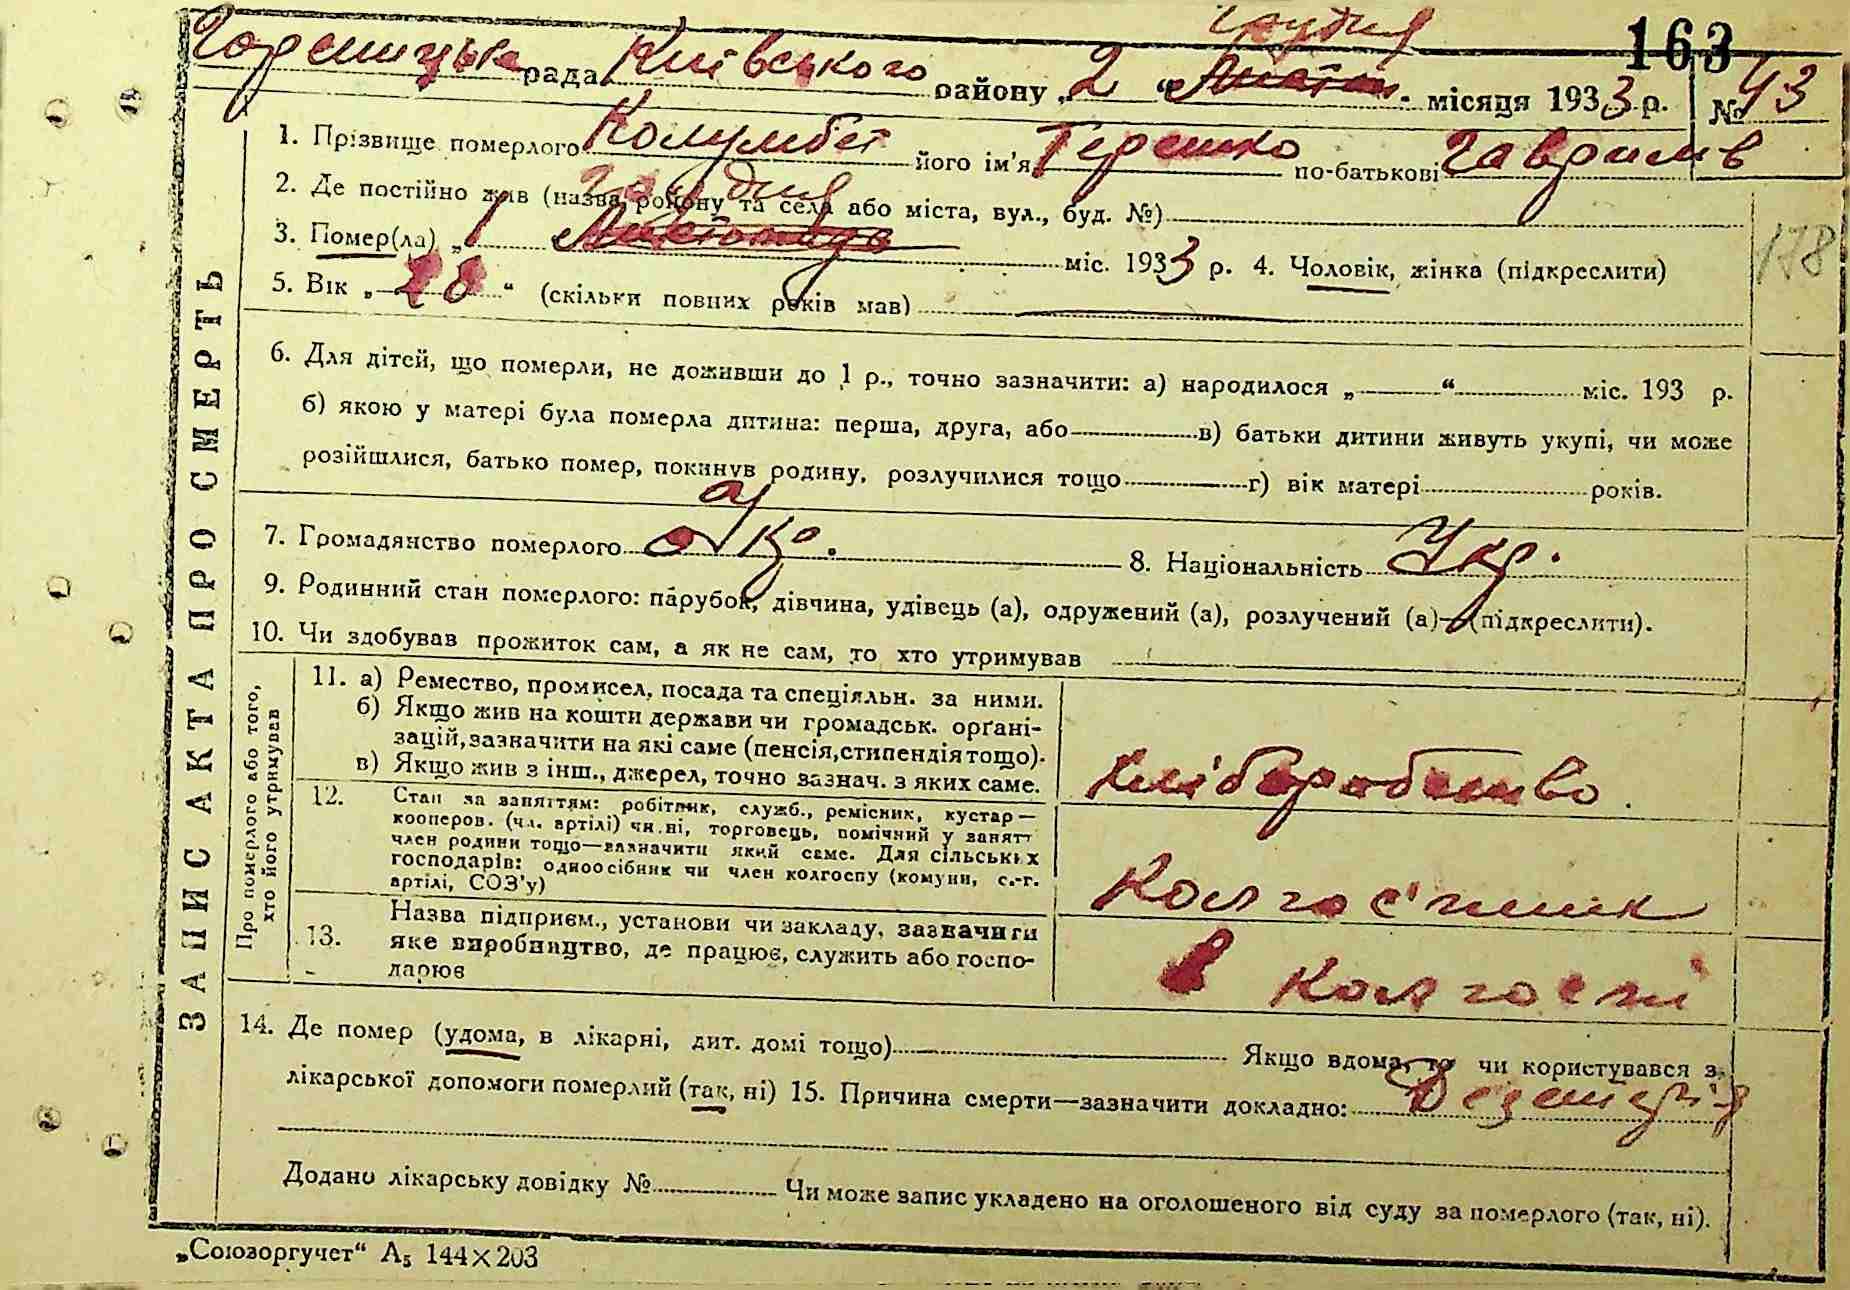 163
грудня
Гореницька рада Київського району „ 2 “ Листоп. місяця 1933 р. № 43
1. Прізвище померлого Колумбет його ім'я Терешко по-батькові Гаврилів
2. Де постійно жив (назва району та села або міста, вул., буд. №)
грудня
3. Помер(ла) „ 1 Листопада міс. 1933 р. 4. Чоловік, жінка (підкреслити)
178
5. Вік „ 28 “ (скільки повних років мав)
6. Для дітей, що померли, не доживши до 1 р., точно зазначити: а) народилося „ “ міс. 193 р.
б) якою у матері була померла дитина: перша, друга, або в) батьки дитини живуть укупі, чи може
розійшлися, батько помер, покинув родину, розлучилися тощо г) вік матері років.
7. Громадянство померлого 8. Національність Укр.
9. Родинний стан померлого: парубок, дівчина, удівець (а), одружений (а), розлучений (а)—(підкреслити).
10. Чи здобував прожиток сам, а як не сам, то хто утримував
ЗАПИС АКТА ПРО СМЕРТЬ
Про померлого або того,
хто його утримував
11. а) Ремество, промисел, посада та спеціяльн. за ними.
б) Якщо жив на кошти держави чи громадськ. орґані-
зацій, зазначити на які саме (пенсія, стипендія тощо).
в) Якщо жив з інш., джерел, точно зазнач. з яких саме.
хліборобство.
12. Стан за заняттям: робітник, служб., ремісник, кустар—
кооперов. (чл. артілі) чи ні, торговець, помічний у занятт
член родини тощо—зазначити який саме. Для сільських
господарів: одноосібник чи член колгоспу (комуни, с.-г.
артілі, СОЗ'у)
Колгос'пник
13. Назва підприєм., установи чи закладу, зазначити
яке виробництво, де працює, служить або госпо-
дарює
в колгоспі
14. Де помер (удома, в лікарні, дит. домі тощо) Якщо вдома, то чи користувався з
лікарської допомоги померлий (так, ні) 15. Причина смерти—зазначити докладно: Дезентерія
Додано лікарську довідку № Чи може запис укладено на оголошеного від суду за померлого (так, ні).
„Союзоргучет“ А5 144×203